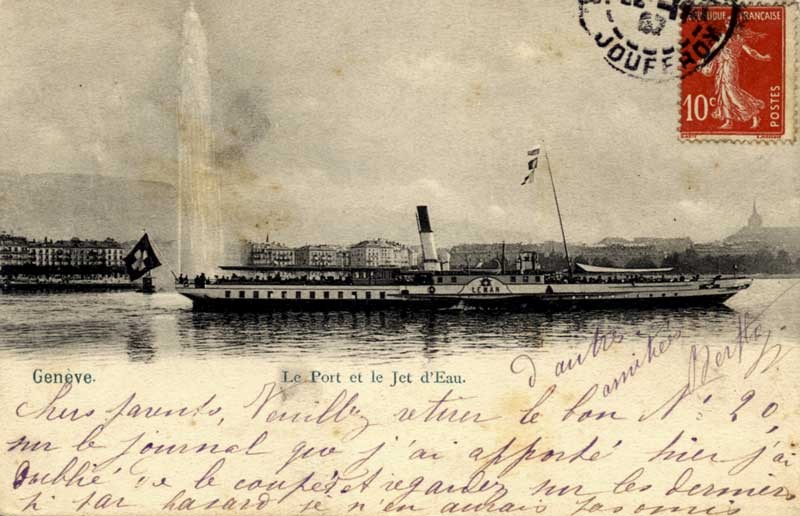 JOUFFROY
RÉPUBLIQUE FRANÇAISE
10c
POSTES
LEMAN
Genève.
Le Port et le Jet d'Eau.
d'autres
amitiés
Berthe
Chers parents, Veuillez retirer le bon N: 20,
sur le journal que j'ai apporté hier j'ai
oublié de le couper et regardez sur les derniers
si par hasard je n'en aurais pas omis